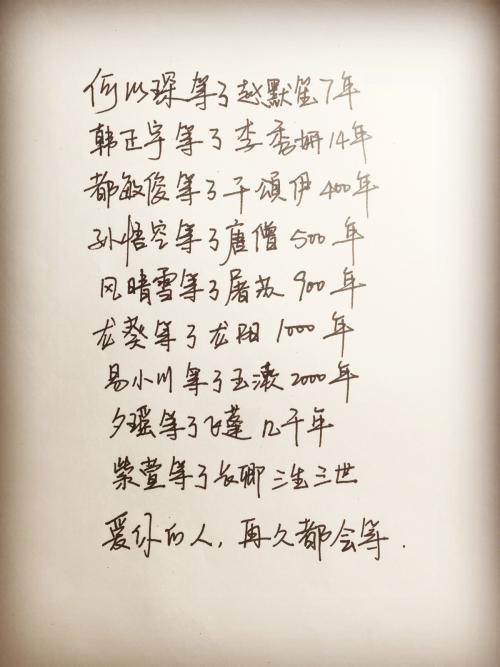 何以琛等了赵默笙7年
韩正宇等了李秀妍14年
都敏俊等了千颂伊400年
孙悟空等了唐僧500年
风晴雪等了屠苏900年
龙葵等了龙阳1000年
易小川等了玉漱2000年
夕瑶等了飞蓬几千年
紫萱等了长卿三生三世
爱你的人,再久都会等.